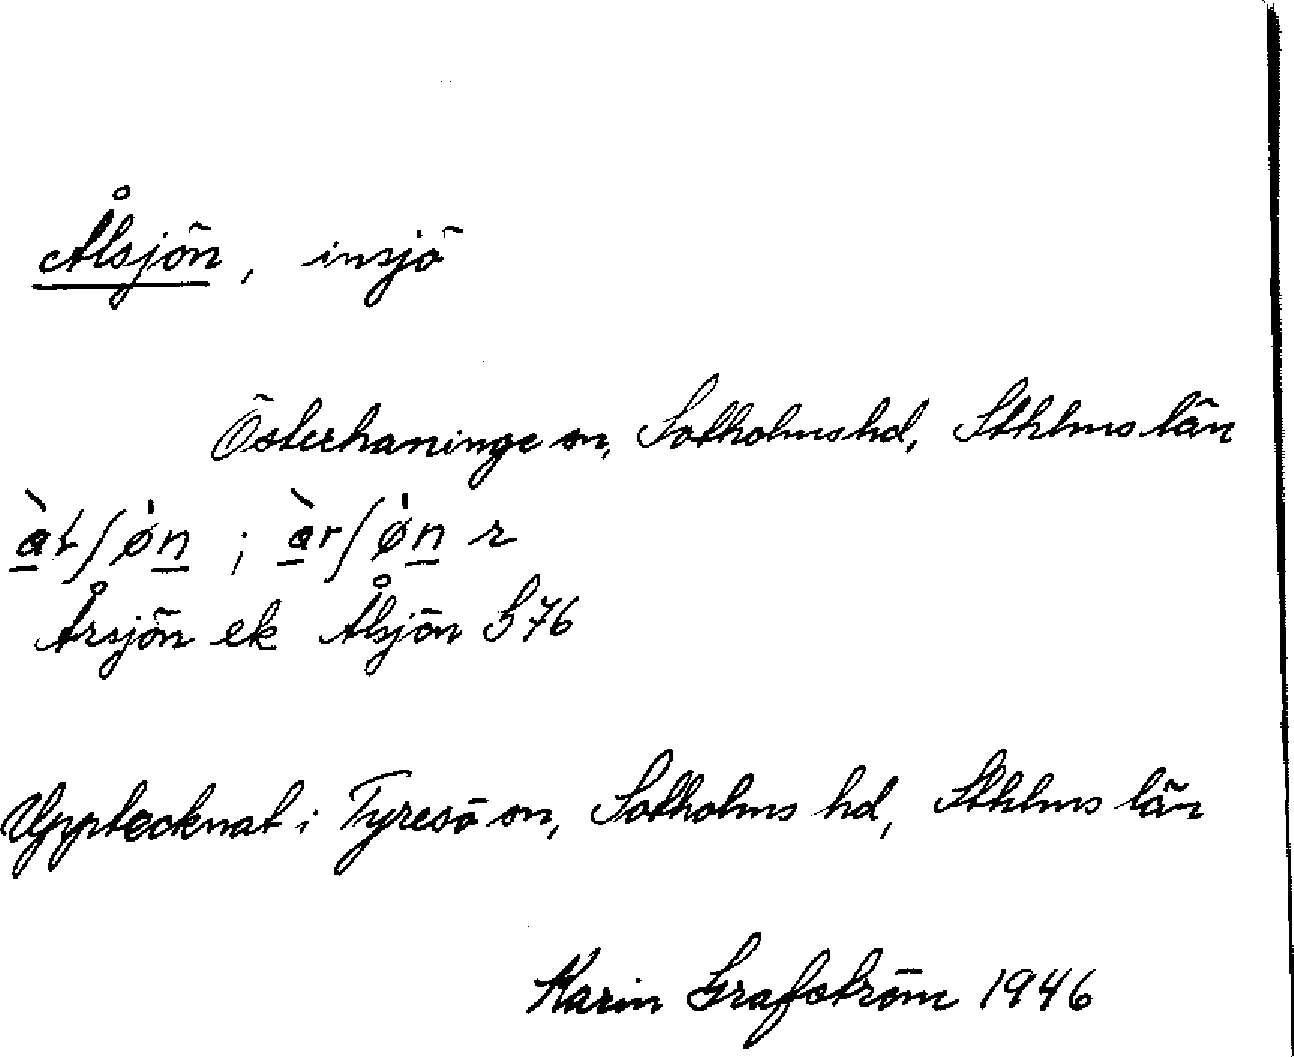 Ålsjön, insjö
Österhaninge sn, Sotholms hd, Sthlms län
Årsjön ek Ålsjön G 76
Upptecknat i Tyresö sn, Sotholms hd, Sthlms län
Karin Grafström 1946